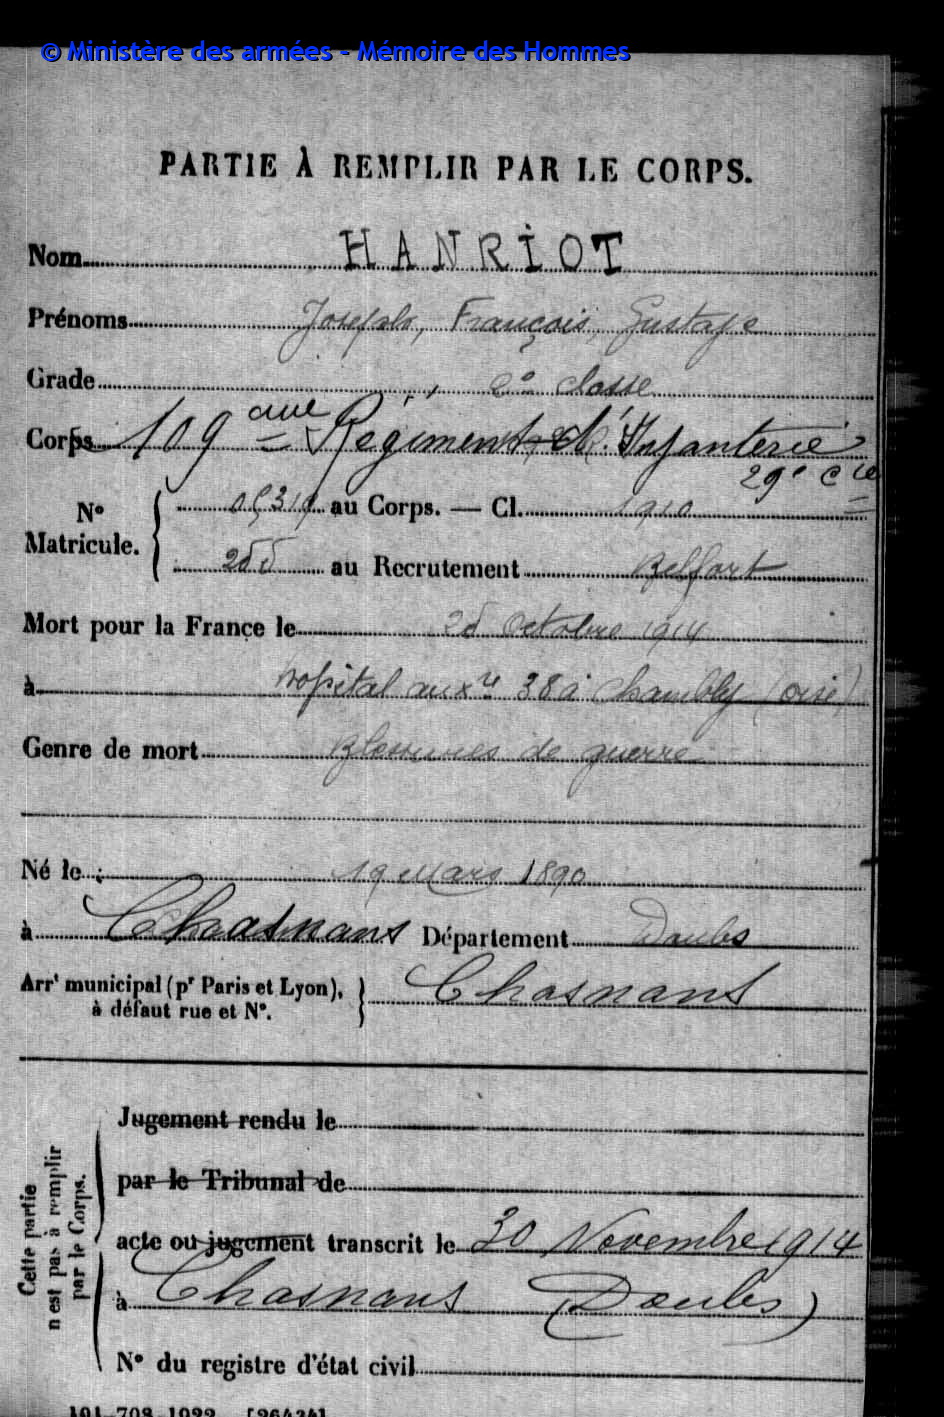 © Ministère des armées - Mémoire des Hommes
PARTIE À REMPLIR PAR LE CORPS.
Nom HANRIOT
Prénoms Joseph, François, Gustave
Grade 2e classe
Corps 109 eme Régiment d'Infanterie
29e Cie
N° Matricule. au Corps. — Cl. 1910
255 au Recrutement Belfort
Mort pour la France le 25 Octobre 1914
à hopital auxre 38 à Chambly (oise)
Genre de mort Blessures de guerre
Né le 19 Mars 1890
à Chasnans Département Doubs
Arrt municipal (pr Paris et Lyon), à défaut rue et N°. Chasnans
Cette partie n'est pas à remplir par le Corps.
Jugement rendu le
par le Tribunal de
acte ou jugement transcrit le 30 Novembre 1914
à Chasnans (Doubs)
N° du registre d'état civil
101-708-1922. [26434]